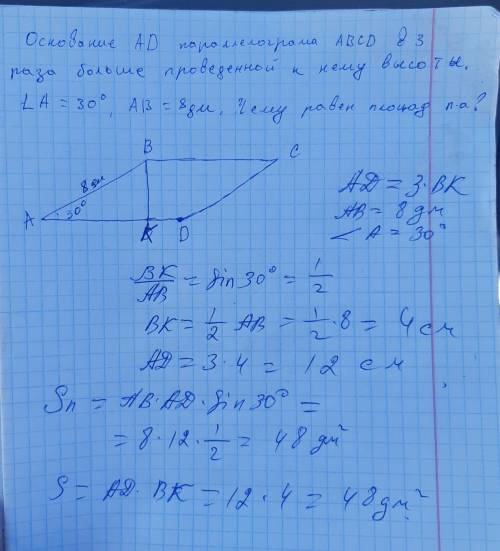 Основание AD параллелограма ABCD в 3
раза больше проведенной к нему высоты.
∠A = 30°, AB = 8дм. Чему равен площад п-а?
B
C
8дм
A
30°
K
D
AD = 3·BK
AB = 8 дм
∠A = 30°
BK/AB = sin 30° = 1/2
BK = 1/2 AB = 1/2 · 8 = 4 см
AD = 3·4 = 12 см
Sп = AB·AD·sin 30° =
= 8·12·1/2 = 48 дм²
S = AD·BK = 12·4 = 48 дм²